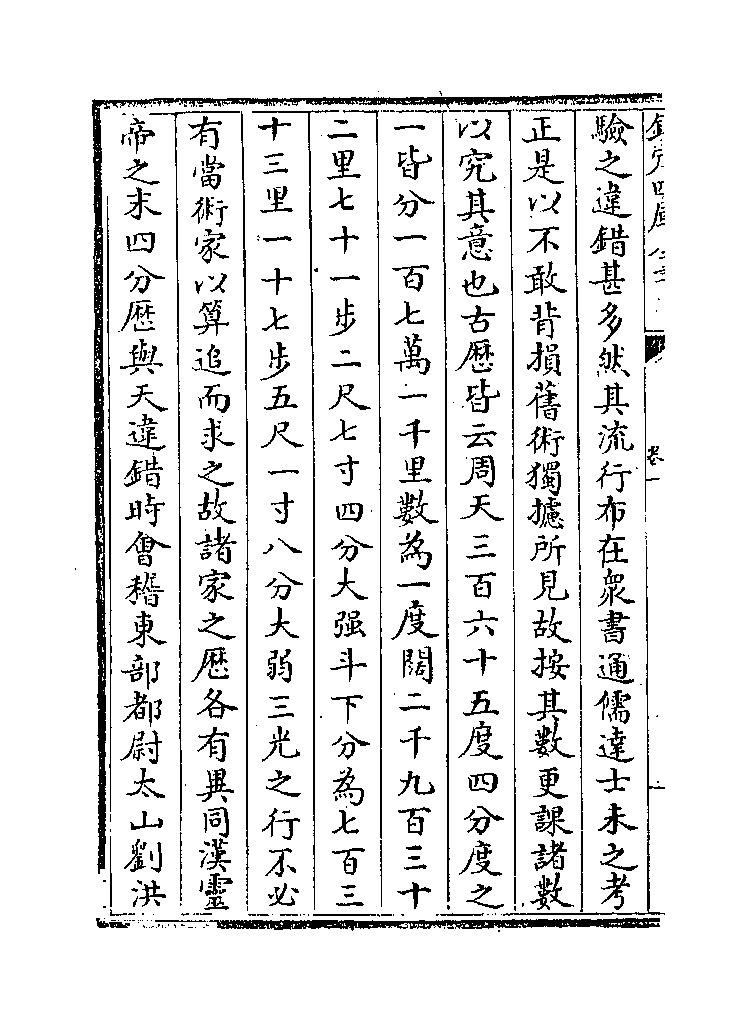 欽定四庫全書
卷一
驗之違錯甚多然其流行布在衆書通儒達士未之考
正是以不敢背損舊術獨據所見故按其數更課諸數
以究其意也古厯皆云周天三百六十五度四分度之
一皆分一百七萬一千里數為一度闊二千九百三十
二里七十一步二尺七寸四分大强斗下分為七百三
十三里一十七步五尺一寸八分大弱三光之行不必
有當術家以算追而求之故諸家之厯各有異同漢靈
帝之末四分厯與天違錯時㑹稽東部都尉太山劉洪